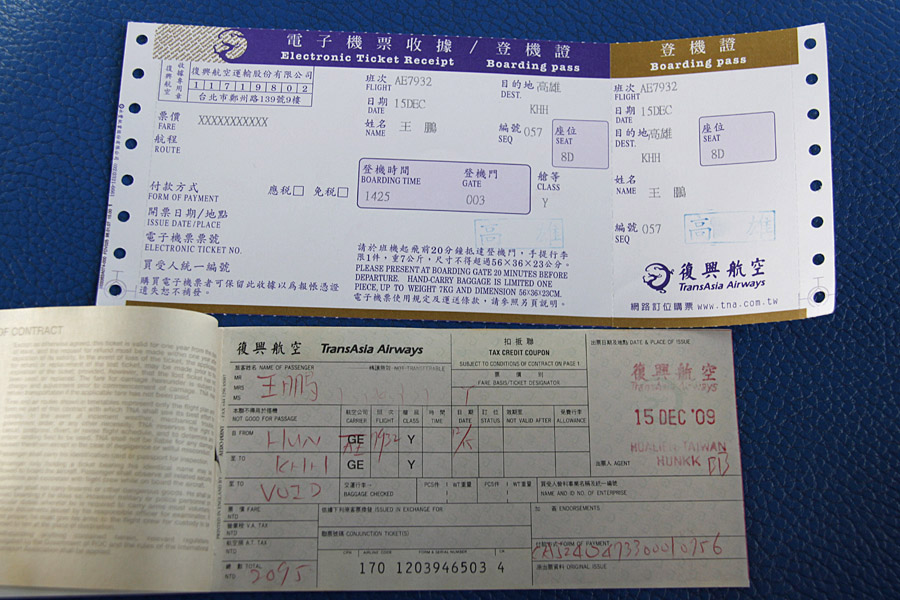 電子機票收據 / 登機證
Electronic Ticket Receipt Boarding pass
登機證
Boarding pass
復興航空
收據專用章
復興航空運輸股份有限公司
11719802
台北市鄭州路139號9樓
票價 XXXXXXXXXXX
FARE
航程
ROUTE
付款方式 應稅 免稅
FORM OF PAYMENT
開票日期/地點
ISSUE DATE/PLACE
電子機票票號
ELECTRONIC TICKET NO.
買受人統一編號
購買電子機票者可保留此收據以為報帳憑證
遺失恕不補發。
班次 AE7932
FLIGHT
目的地 高雄
DEST. KHH
日期 15DEC
DATE
姓名 王 鵬
NAME
編號 057
SEQ
座位
SEAT
8D
登機時間 登機門
BOARDING TIME GATE
1425 003
艙等
CLASS
Y
高雄
請於班機起飛前20分鐘抵達登機門,手提行李
限1件,重7公斤,尺寸不得超過56×36×23公分。
PLEASE PRESENT AT BOARDING GATE 20 MINUTES BEFORE
DEPARTURE. HAND-CARRY BAGGAGE IS LIMITED ONE
PIECE, UP TO WEIGHT 7KG AND DIMENSION 56×36×23CM.
電子機票使用規定及運送條款,請參照另頁說明。
班次 AE7932
FLIGHT
日期 15DEC
DATE
目的地 高雄
DEST. KHH
座位
SEAT
8D
姓名 王 鵬
NAME
編號 057
SEQ
高雄
復興航空
TransAsia Airways
網路訂位購票 www.tna.com.tw
OF CONTRACT
復興航空 TransAsia Airways
扣抵聯
TAX CREDIT COUPON
SUBJECT TO CONDITIONS OF CONTRACT ON PAGE 1
出票日期及地點 DATE & PLACE OF ISSUE
旅客姓名 NAME OF PASSENGER 轉讓無效 NOT-TRANSFERABLE
MR
MRS
MS
王鵬
票價別
FARE BASIS/TICKET DESIGNATOR
復興航空
TransAsia Airways
15 DEC '09
HUALIEN TAIWAN
HUNKK
本聯不得用於搭機
NOT GOOD FOR PASSAGE
航空公司 CARRIER
班次 FLIGHT
艙等 CLASS
時間 TIME
日期 DATE
訂位 STATUS
效期至 NOT VALID AFTER
免費行李 ALLOWANCE
自 FROM HUN GE AE 7932 Y 12/15
至 TO KHH GE Y
出票人 AGENT
至 TO VOID
交運行李
BAGGAGE CHECKED
PCS件 WT重量 PCS件 WT重量
買受人營利事業名稱及統一編號
NAME AND ID NO. OF ENTERPRISE
票價 FARE
NTD
依據下列原客票換發 ISSUED IN EXCHANGE FOR
簽註 ENDORSEMENTS
營業稅 V.A. TAX
NTD
聯票號碼 CONJUNCTION TICKET(S)
航空稅 A.T. TAX
NTD
付款方式 FORM OF PAYMENT
總額 TOTAL
NTD 2095
CPN AIRLINE CODE FORM & SERIAL NUMBER CK
170 1203946503 4
原出票資料 ORIGINAL ISSUE